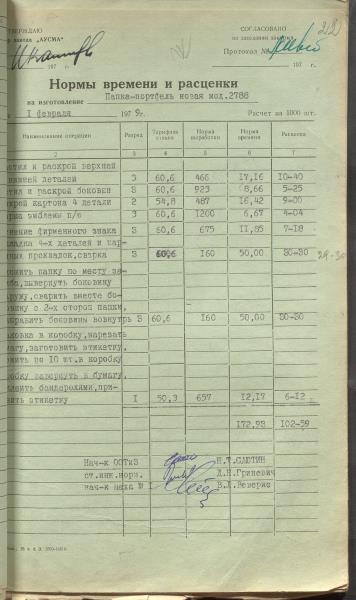 УТВЕРЖДАЮ
завода "АУСМА"
197 г.
СОГЛАСОВАНО
Протокол №
197 г.
Нормы времени и расценки
на изготовление Папка-портфель новая мод.2788
с I февраля 1979г. Расчет на 1000 шт.
Наименование операции Разряд Тарифная Норма выработки Норма времени Расценка
и раскрой верхней
нижней деталей 3 60,6 466 17,16 10-40
и раскрой боковин 3 60,6 923 8,66 5-25
раскрой картона 4 детали 2 54,8 487 16,42 9-00
эмблемы п/о 3 60,6 1200 6,67 4-04
фирменного знака 3 60,6 675 11,85 7-18
4-х деталей и кар-
прокладок, сварка 3 60,6 160 50,00 30-30
29-30
папку по месту
вывернуть боковину
сварить вместе бо-
с 2-х сторон папки,
боковины вовнутрь 3 60,6 160 50,00 30-30
в коробку, нарезать
заготовить этикетку,
по 10 шт. в коробку
завернуть в бумагу,
бандеролями, при-
этикетку I 50,3 657 12,17 6-12
172,93 102-59
Нач-к ООТиЗ Н.Т.САЮТИН
ст.инж.норм. Д.Н.Гриневич
нач-к цеха № I В.Л.Веверис